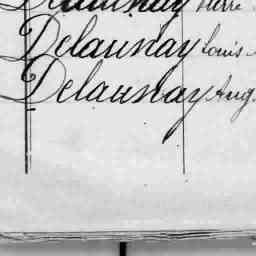 Delaunay Pierre
Delaunay Louis
Delaunay Aug